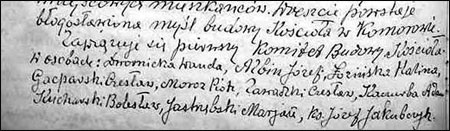 miejscowych mieszkańców. Wreszcie powstaje
błogosławiona myśl budowy Kościoła w Komorowie.
Zawiązuje się pierwszy Komitet Budowy Kościoła
w osobach: Wanda, Albin Józef, Halina,
Gacparski Czesław, Moroz Piotr, Zawadzki Czesław, Adam
Kucharski Bolesław, Jastrzębski Marjan, ks. Józef Jakubczyk.